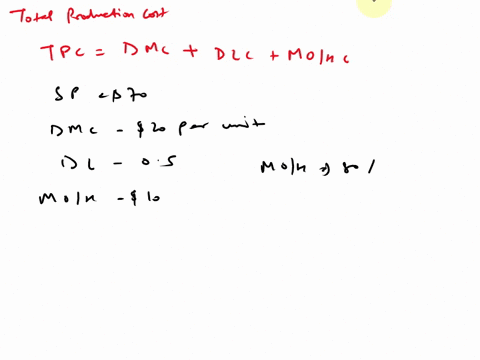 Total Production Cost
TPC = DMC + DLC + MO/HC
SP - $70
DMC - $20 per unit
DL - 0.5
MO/H → 80 /
MO/H - $10